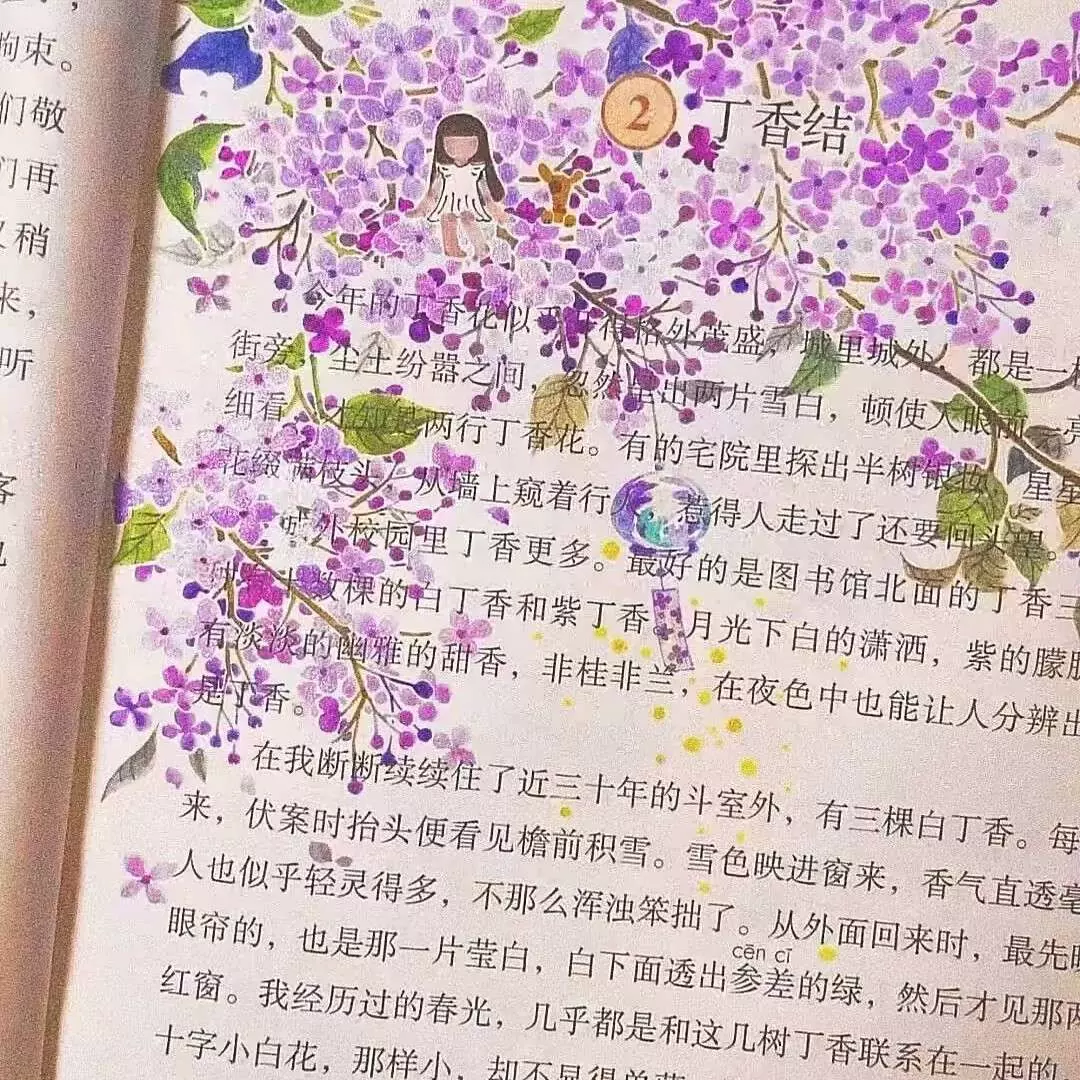 拘束。
们敬
们再
又稍
来，
听
客
2 丁香结
今年的丁香花似乎开得格外茂盛，城里城外，都是一样
街旁，尘土纷嚣之间，忽然呈出两片雪白，顿使人眼前一亮
细看，才知是两行丁香花。有的宅院里探出半树银妆，星星
花缀满枝头，从墙上窥着行人，惹得人走过了还要回头望。
城外校园里丁香更多。最好的是图书馆北面的丁香三
十数棵的白丁香和紫丁香。月光下白的潇洒，紫的朦胧
有淡淡的幽雅的甜香，非桂非兰，在夜色中也能让人分辨出
是丁香。
在我断断续续住了近三十年的斗室外，有三棵白丁香。每
来，伏案时抬头便看见檐前积雪。雪色映进窗来，香气直透毫
人也似乎轻灵得多，不那么浑浊笨拙了。从外面回来时，最先映
cēn cī
眼帘的，也是那一片莹白，白下面透出参差的绿，然后才见那两
红窗。我经历过的春光，几乎都是和这几树丁香联系在一起的。
十字小白花，那样小，却不显得单薄